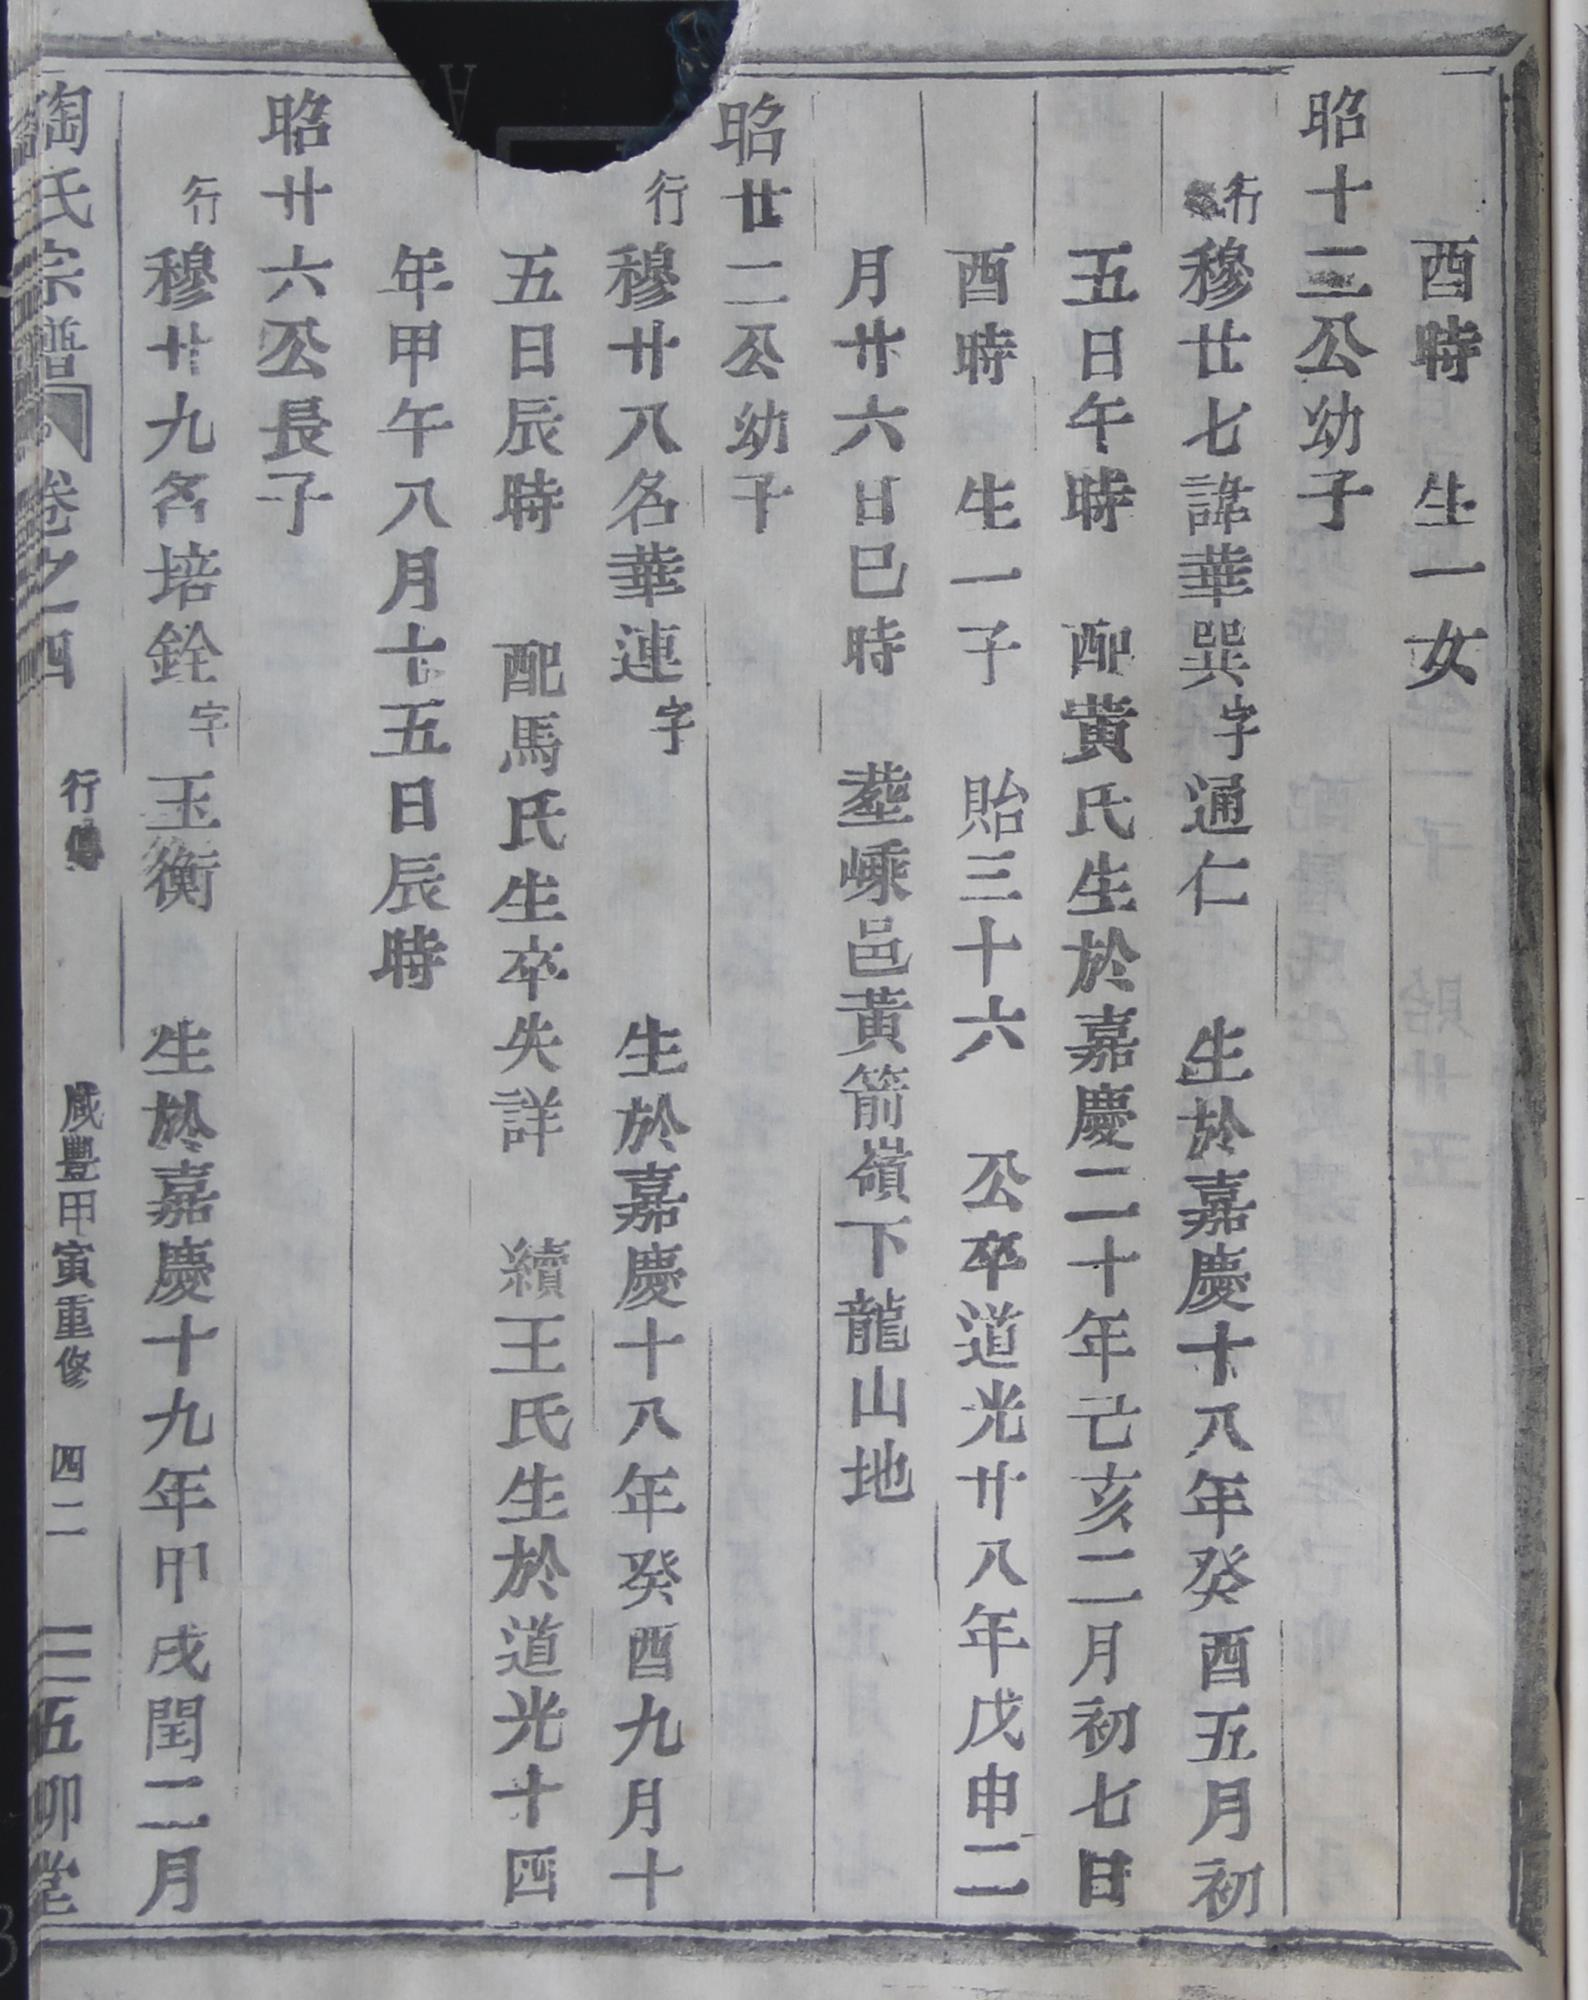 酉時　生一女
昭十二公幼子
行穆廿七諱華巽字通仁　生於嘉慶十八年癸酉五月初
五日午時　配黃氏生於嘉慶二十年亡亥二月初七日
酉時　生一子　貽三十六　公卒道光廿八年戊申二
月廿六日巳時　塟嵊邑黃箭嶺下龍山地
昭廿二公幼子
行穆廿八名華連字　生於嘉慶十八年癸酉九月十
五日辰時　配馬氏生卒失詳　續王氏生於道光十四
年甲午八月十五日辰時
昭廿六公長子
行穆廿九名培銓字玉衡　生於嘉慶十九年甲戌閏二月
陶氏宗譜　卷之四　行傳　咸豐甲寅重修　四二　五柳堂